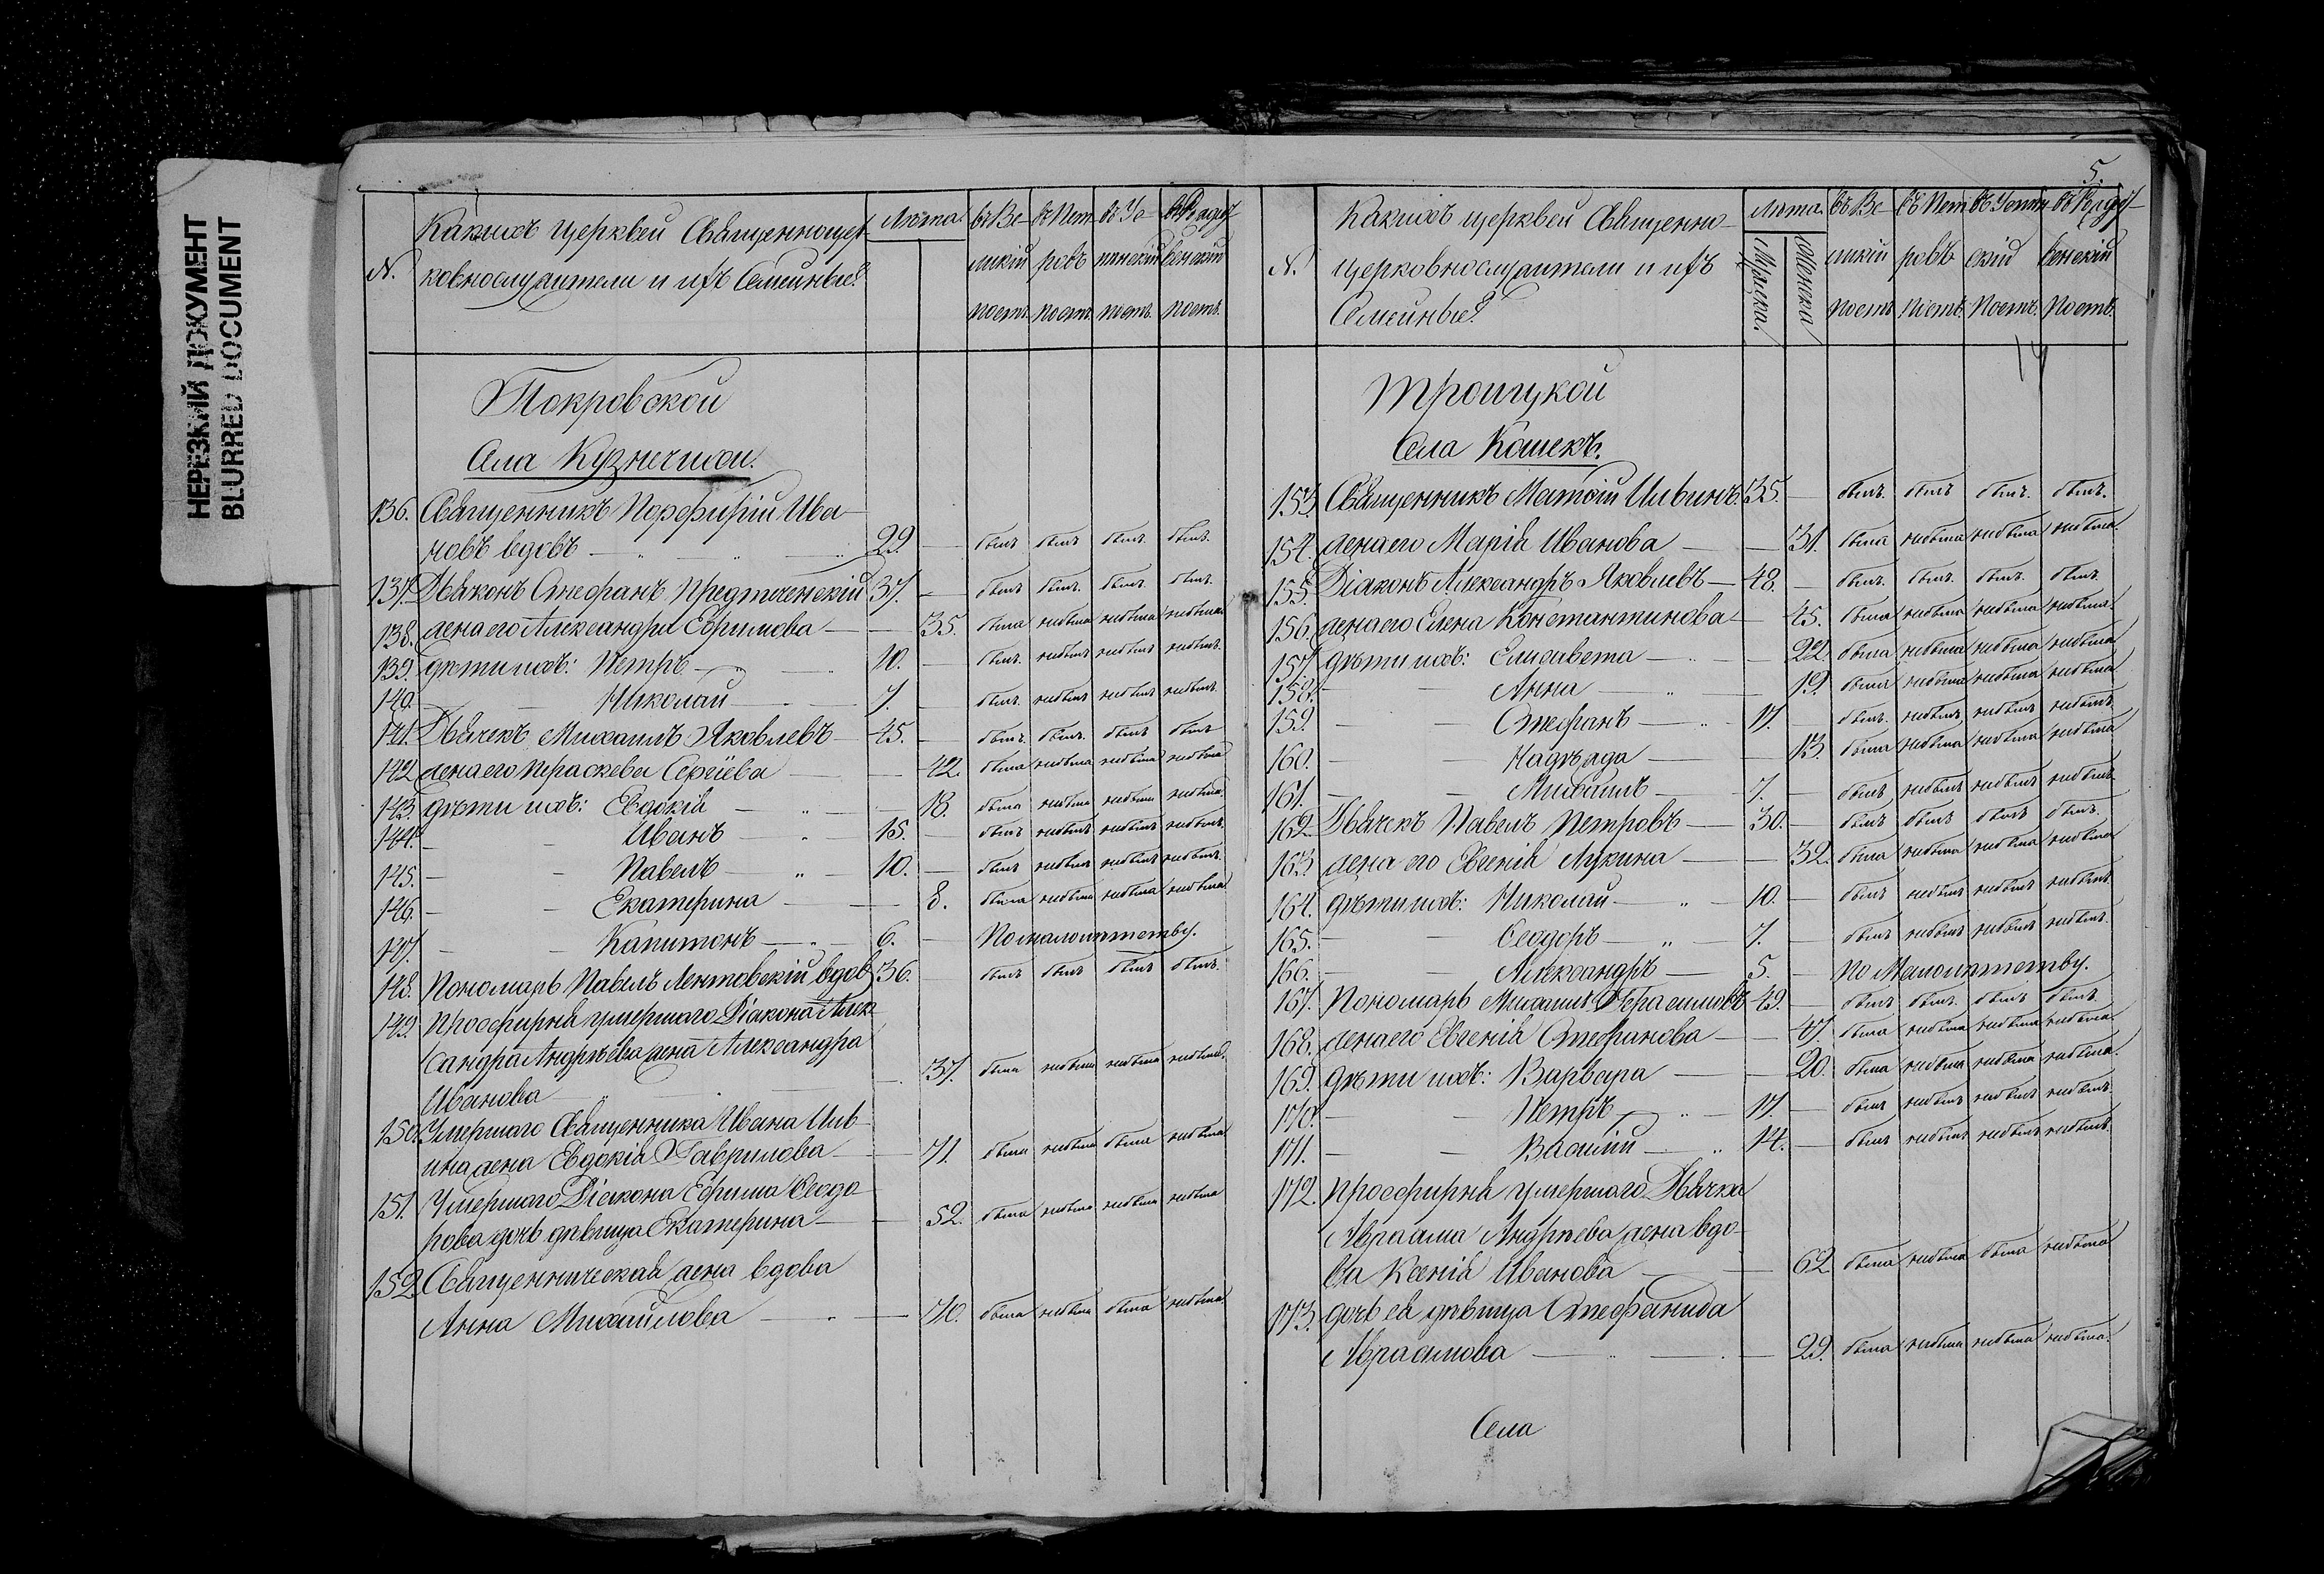 НЕРЕЗКИЙ ДОКУМЕНТ
BLURRED DOCUMENT
N. Какихъ церквей Священноцер- Лѣта. въ Ве- въ Пет- въ Ус-
ковнослужители и ихъ Семейные? ликій ровъ пенскій венскій
постъ. постъ. постъ. постъ.
Покровской
Села Кузнечихи.
136. Священникъ Порфирій Ива-
новъ вдовъ — 29. — былъ былъ былъ. былъ.
137. Дьяконъ Стефанъ Предтеченскій 37. — былъ былъ. былъ. былъ.
138. жена его Александра Ефимова — — 35. была небыла небыла небыла
139. дѣти ихъ: Петръ — 10. — былъ. небылъ небылъ небылъ.
140. — — Николай — 7. — былъ. небылъ небылъ небылъ.
141. Дьячекъ Михаилъ Яковлевъ — 45. — былъ. былъ. былъ былъ
142. жена его Параскева Сергіева — — 42. была небыла небыла небыла
143. дѣти ихъ: Евдокія — — 18. была небыла небыла небыла.
144. — — Иванъ — 15. — былъ небылъ небылъ небылъ.
145. — — Павелъ — 10. — былъ небылъ небылъ небылъ.
146. — — Екатерина — — 8. была небыла небыла небыла.
147. — — Капитонъ — 6. — По малолѣтству.
148. Пономарь Павелъ Лентовскій вдов. 36. — былъ былъ былъ былъ.
149. Просфирня умершаго Діакона Алек-
сандра Андрѣева жена Александра
Иванова — — 37. была небыла небыла небыла.
150. Умершаго Священника Ивана Ильи-
ина жена Евдокія Гаврилова — — 71. была небыла была небыла.
151. Умершаго Діакона Ефима Ѳеодо-
рова дочь дѣвица Екатерина — — 52. была небыла небыла небыла
152. Священническая жена вдова
Анна Михайлова — — 70. была небыла была небыла.
5.
N. Какихъ церквей Священно- Лѣта. въ Ве- въ Пет- въ Успен-
церковнослужители и ихъ Мужска. Женска ликій ровъ скій венскій
Семейные? постъ постъ. Постъ. Постъ.
Троицкой
Села Кошекъ.
153. Священникъ Матѳій Ильинъ. 35. — былъ. былъ былъ. былъ.
154. жена его Марія Иванова — — 31. была небыла небыла небыла.
155. Діаконъ Александръ Яковлевъ — 48. — былъ. былъ. былъ. былъ.
156. жена его Елена Константинова — 45. была небыла небыла небыла.
157. дѣти ихъ: Елисавета — — 22. была небыла небыла небыла
158. — — Анна — — 19. была небыла небыла небыла
159. — — Стефанъ — 17. — былъ. небылъ небылъ небылъ.
160. — — Надѣжда — — 13. была небыла небыла небыла
161. — — Михаилъ — 7. — былъ небылъ небылъ небылъ.
162. Дьячекъ Павелъ Петровъ — 30. — былъ былъ былъ былъ.
163. жена его Евгенія Лукина — — 32. была небыла небыла небыла
164. дѣти ихъ: Николай — 10. — былъ небылъ небылъ небылъ
165. — — Ѳеодоръ — 7. — былъ небылъ небылъ небылъ.
166. — — Александръ — 5. — По Малолѣтству.
167. Пономарь Михаилъ Герасимовъ 49. — былъ былъ. былъ былъ.
168. жена его Евгенія Стефанова — — 47. была небыла небыла небыла.
169. дѣти ихъ: Варвара — — 20. была небыла небыла небыла.
170. — — Петръ — 17. — былъ небылъ небылъ небылъ.
171. — — Василій — 14. — былъ небылъ небылъ небылъ.
172. Просфирня умершаго Дьячка
Авраама Андрѣева жена вдо-
ва Ксенія Иванова — — 62. была небыла была небыла
173. дочь ея дѣвица Стефанида
Авраамова — — 29. была небыла небыла небыла.
Села